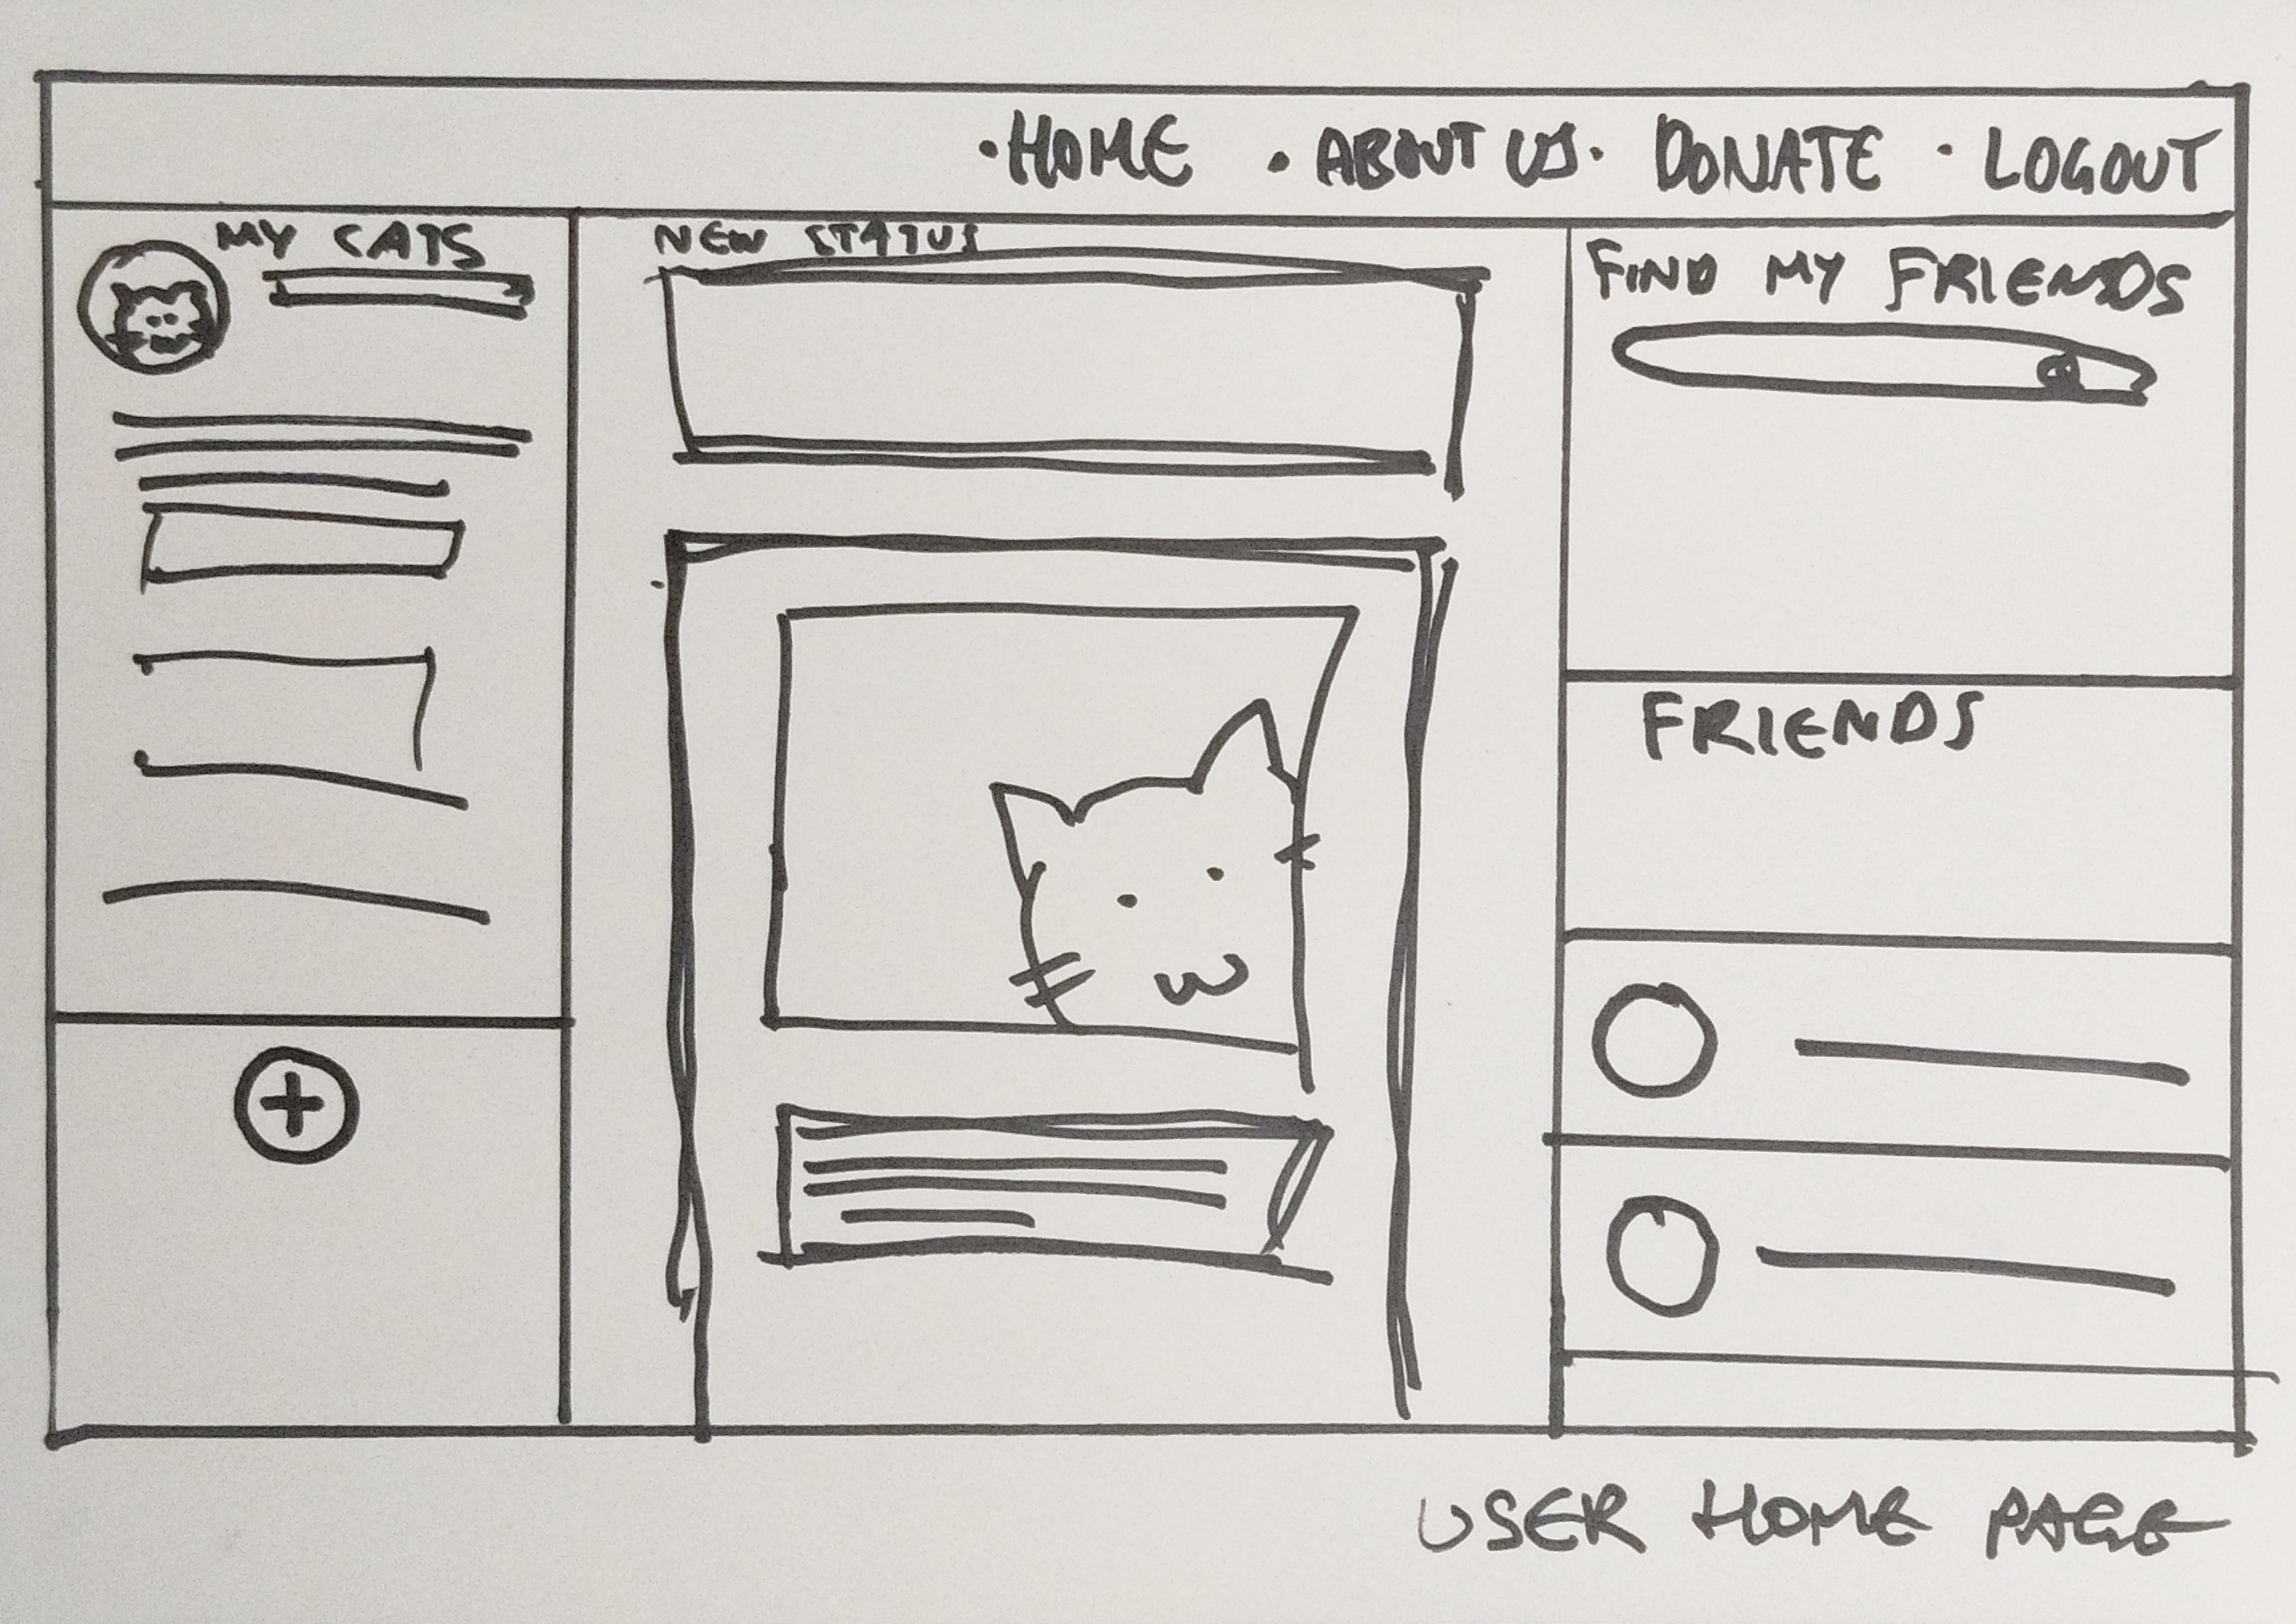 ·HOME ·ABOUT US· DONATE ·LOGOUT
MY CATS
NEW STATUS
FIND MY FRIENDS
FRIENDS
USER HOME PAGE